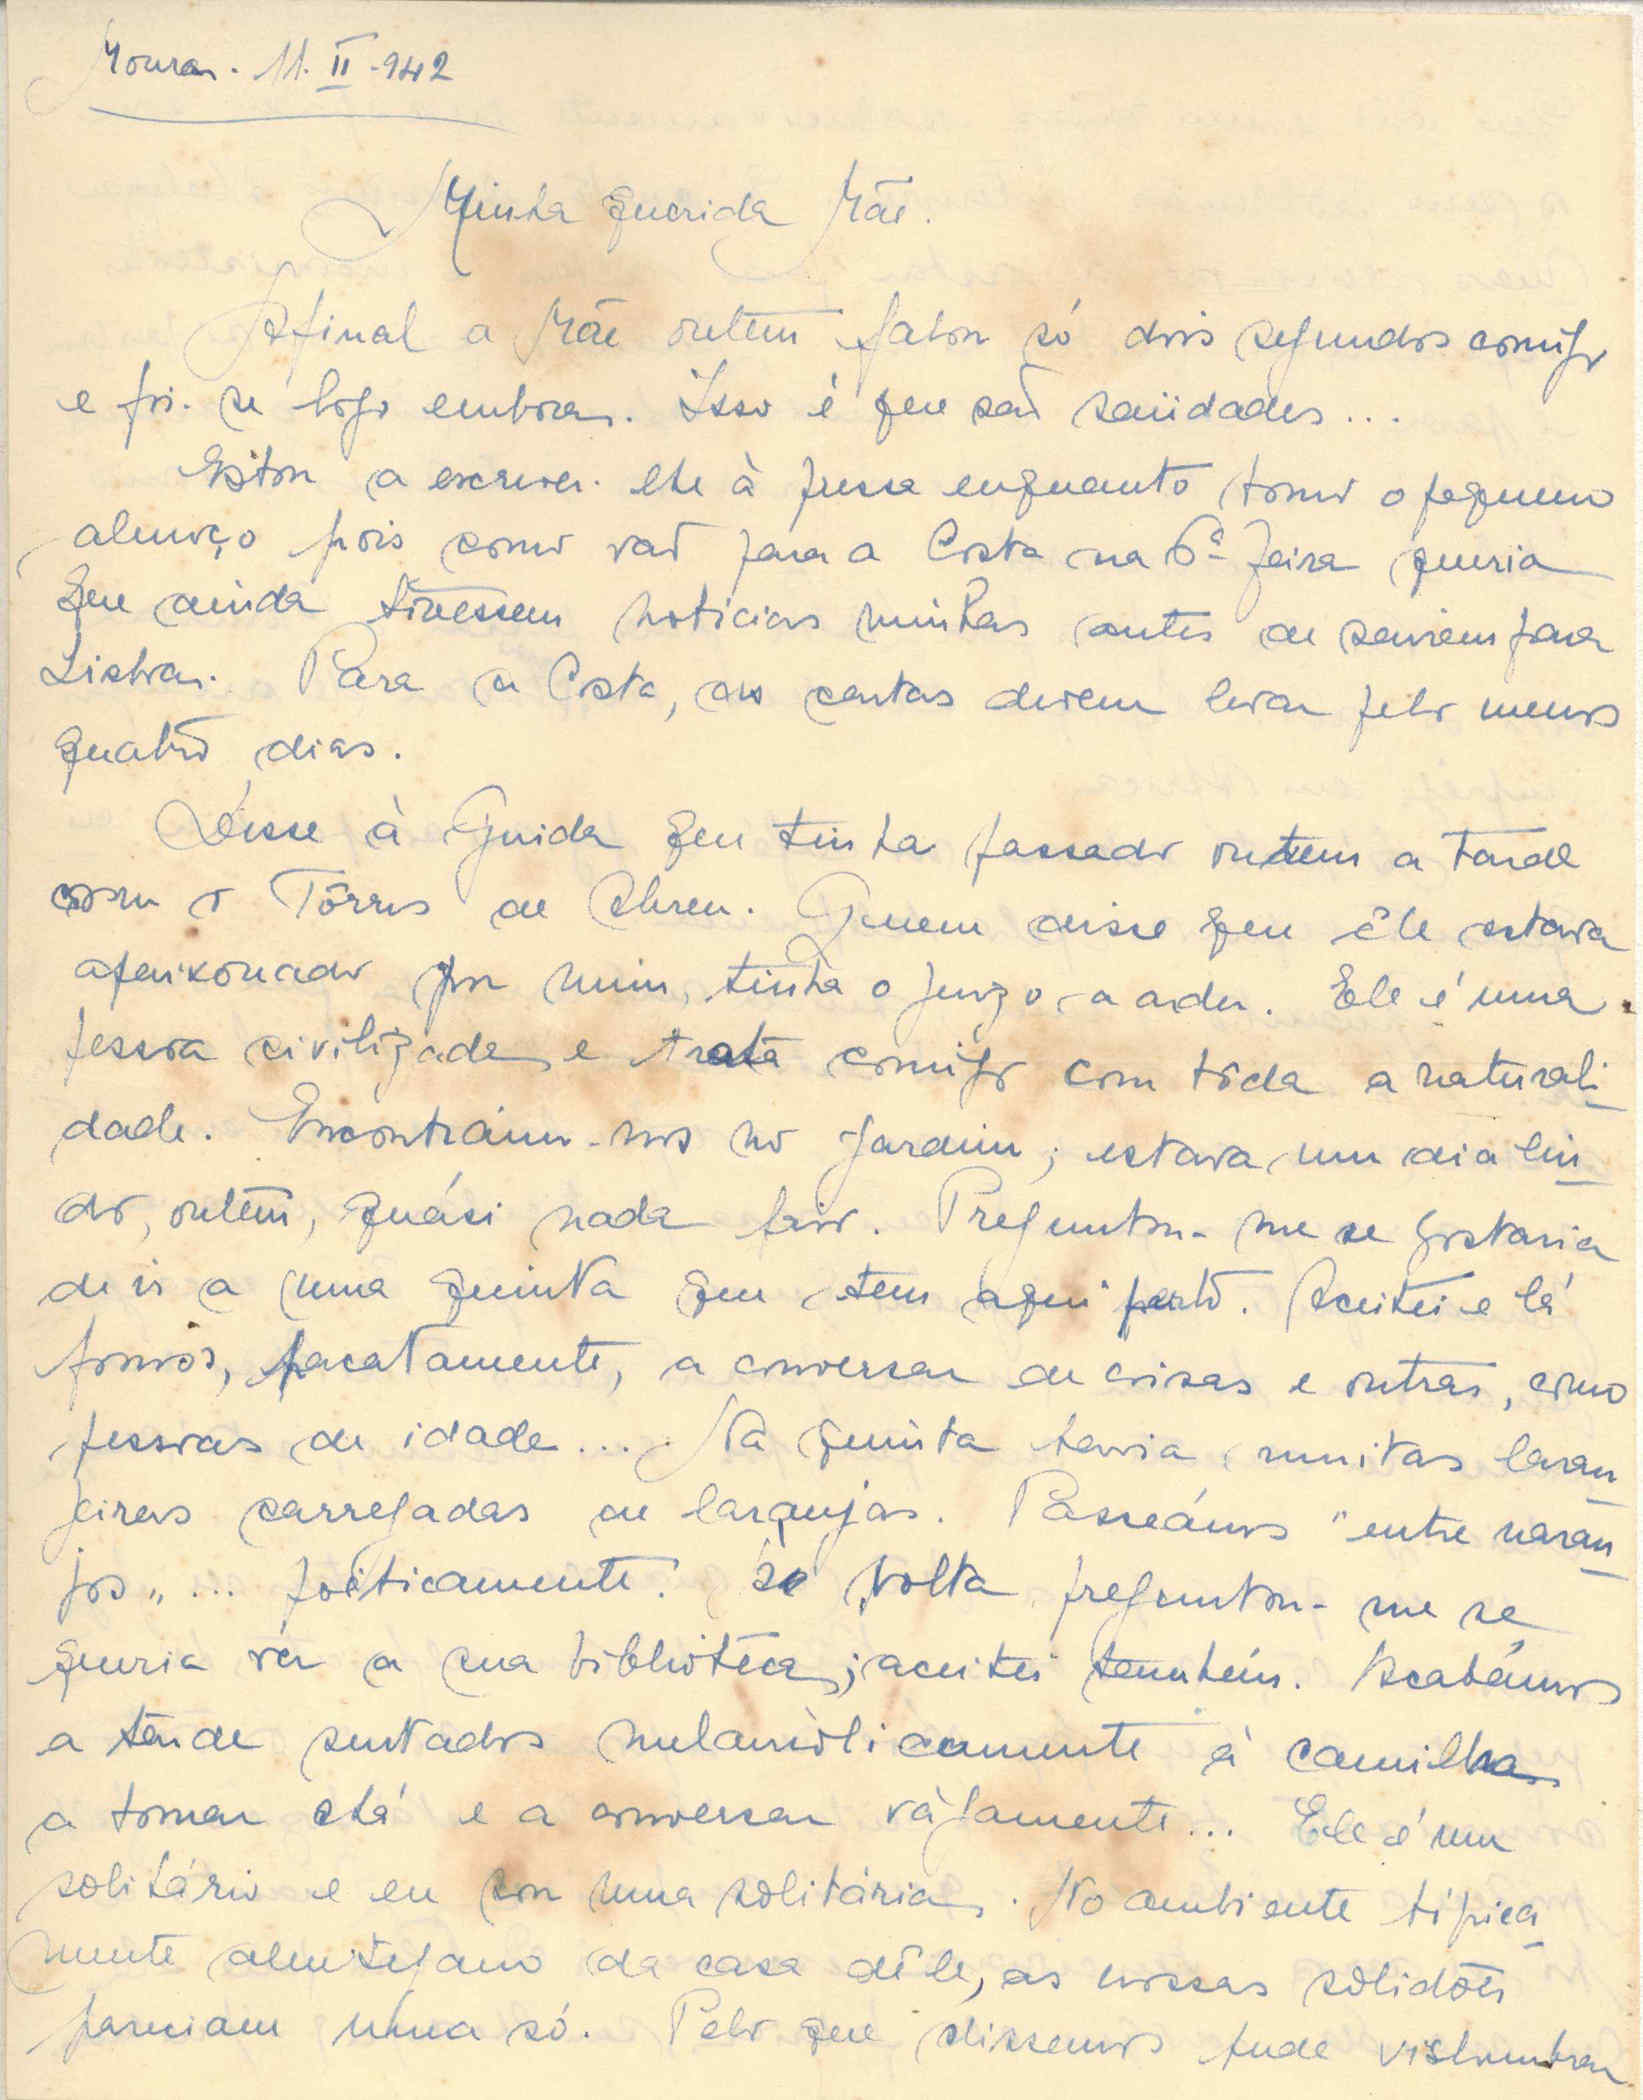 Moura. 11. II. 942
Minha querida Mãe.
Afinal a Mãe ontem falou só dois segundos comigo
e foi-se logo embora. Isso é que são saüdades...
Estou a escrever-lhe à pressa enquanto tomo o pequeno
almoço pois como vão para a Costa na 6ª feira queria
que ainda tivessem notícias minhas antes de sairem para
Lisboa. Para a Costa, as cartas devem levar pelo menos
quatro dias.
Disse à Guida que tinha passado ontem a tarde
com o Tôrres de Abreu. Quem disse que êle estava
apaixonado por mim, tinha o juizo a arder. Ele é uma
pessoa civilizada e trata comigo com tôda a naturali-
dade. Encontrámo-nos no jardim; estava um dia lin-
do, ontem, quási nada frio. Preguntou-me se gostaria
de ir a uma quinta que tem aqui perto. Aceitei e lá
fomos, pacatamente, a conversar de coisas e outras, como
pessoas de idade.... Na quinta havia muitas laran-
jeiras carregadas de laranjas. Passeámos "entre naran-
jos"... poèticamente. À volta preguntou-me se
queria vêr a sua biblioteca; aceitei também. Acabámos
a tarde sentados melancòlicamente à camilha
a tomar chá e a conversar vàgamente... Ele é um
solitário e eu sou uma solitária. No ambiente tipica-
mente alentejano da casa dêle, as nossas solidões
pareciam uma só. Pelo que dissemos pude vislumbrar